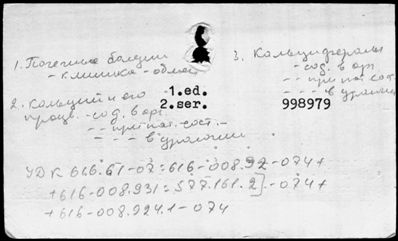 1. Почечные болезни
- клиника - обмен
2. Кальций и его
произв. - сод. в орг.
- - при пат. сост. -
- - - в урологии
3. Кальциферолы
- сод. в орг.
- - при пат. сост.
- - - в урологии
1.ed.
2.ser.
998979
УДК 616.61-07:616-008.92-074+
+616-008.931:577.161.2]-074+
+616-008.924.1-074